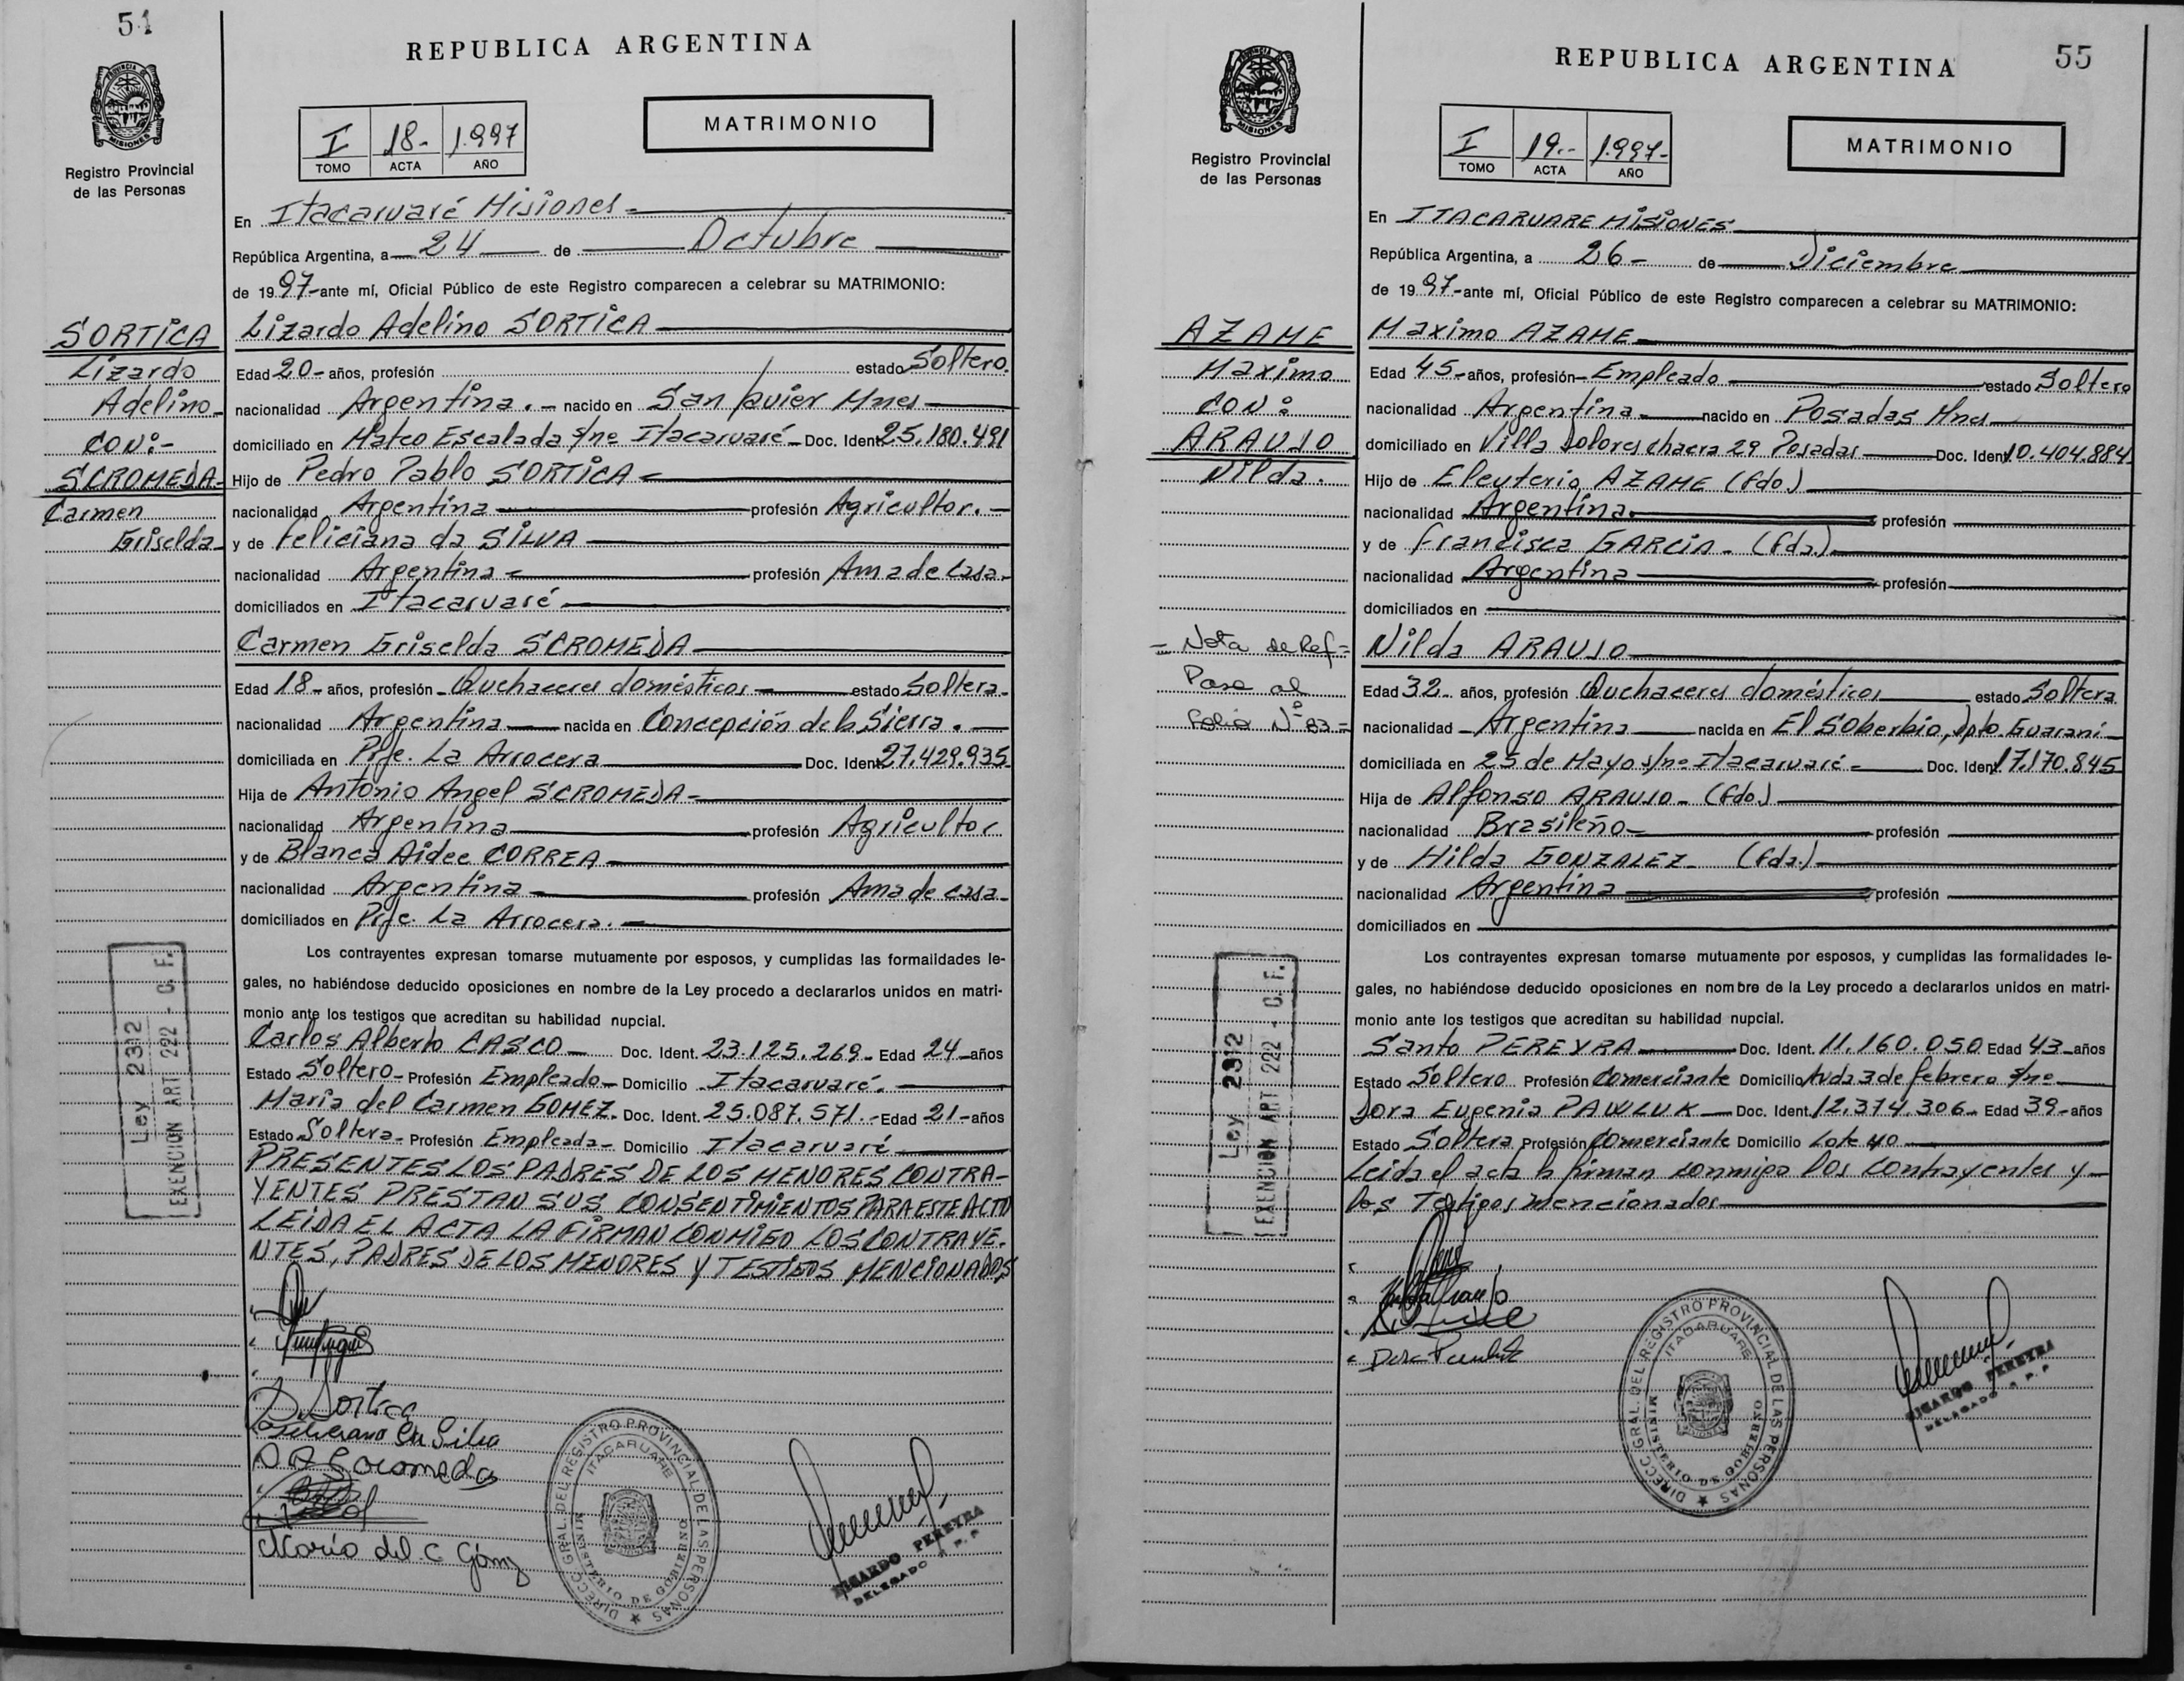 51
REPUBLICA ARGENTINA
MISIONES
Registro Provincial
de las Personas
I 18- 1.997
TOMO ACTA AÑO
MATRIMONIO
En Itacaruaré Misiones
República Argentina, a 24 de Octubre
de 1997-ante mí, Oficial Público de este Registro comparecen a celebrar su MATRIMONIO:
SORTICA
Lizardo
Adelino
CON:-
SCROMEDA
Carmen
Griselda
Lizardo Adelino SORTICA
Edad 20- años, profesión estado Soltero.
nacionalidad Argentina.- nacido en San Javier Mnes
domiciliado en Mateo Escalada s/nº Itacaruaré- Doc. Ident. 25.180.491
Hijo de Pedro Pablo SORTICA
nacionalidad Argentina profesión Agricultor.-
y de Feliciana da SILVA
nacionalidad Argentina profesión Ama de casa.
domiciliados en Itacaruaré
Carmen Griselda SCROMEDA
Edad 18- años, profesión Quehaceres domésticos estado Soltera.
nacionalidad Argentina nacida en Concepción de la Sierra.
domiciliada en Pje. La Arrocera Doc. Ident. 27.429.935
Hija de Antonio Angel SCROMEDA-
nacionalidad Argentina profesión Agricultor
y de Blanca Aidee CORREA
nacionalidad Argentina profesión Ama de casa.
domiciliados en Pje. La Arrocera.
Los contrayentes expresan tomarse mutuamente por esposos, y cumplidas las formalidades le-
gales, no habiéndose deducido oposiciones en nombre de la Ley procedo a declararlos unidos en matri-
monio ante los testigos que acreditan su habilidad nupcial.
Carlos Alberto CASCO Doc. Ident. 23.125.269- Edad 24 años
Estado Soltero- Profesión Empleado- Domicilio Itacaruaré.
María del Carmen GOMEZ. Doc. Ident. 25.087.571.- Edad 21- años
Estado Soltera- Profesión Empleada- Domicilio Itacaruaré
PRESENTES LOS PADRES DE LOS MENORES CONTRA-
YENTES PRESTAN SUS CONSENTIMIENTOS PARA ESTE ACTO
LEIDA EL ACTA LA FIRMAN CONMIGO LOS CONTRAYE-
NTES, PADRES DE LOS MENORES Y TESTIGOS MENCIONADOS
Ley 2312
EXENCION ART 222 - C. F.
Sortica
da Silva
Maria del C Gómz
DIRECC. GRAL. DEL REGISTRO PROVINCIAL DE LAS PERSONAS
ITACARUARE
MINISTERIO DE GOBIERNO
RICARDO PEREYRA
DELEGADO R. P. P.
55
REPUBLICA ARGENTINA
MISIONES
Registro Provincial
de las Personas
I 19.- 1.997-
TOMO ACTA AÑO
MATRIMONIO
En ITACARUARE MISIONES
República Argentina, a 26- de Diciembre
de 1997-ante mí, Oficial Público de este Registro comparecen a celebrar su MATRIMONIO:
AZAME
Maximo
CON:
ARAUJO
Nilda.
Maximo AZAME
Edad 45- años, profesión- Empleado estado Soltero
nacionalidad Argentina- nacido en Posadas Mnes
domiciliado en Villa Dolores chacra 29 Posadas Doc. Ident. 10.404.884
Hijo de Eleuterio AZAME (fdo.)
nacionalidad Argentina profesión
y de Francisca GARCIA- (fda.)
nacionalidad Argentina profesión
domiciliados en
- Nota de Ref=
Pasa al
Folio Nº 83=
Nilda ARAUJO
Edad 32- años, profesión Quehaceres domésticos estado Soltera
nacionalidad- Argentina nacida en El Soberbio, Dpto. Guaraní
domiciliada en 25 de Mayo s/nº Itacaruaré- Doc. Ident. 17.170.845
Hija de Alfonso ARAUJO- (fdo.)
nacionalidad Brasileño profesión
y de Hilda GONZALEZ (fda.)
nacionalidad Argentina profesión
domiciliados en
Los contrayentes expresan tomarse mutuamente por esposos, y cumplidas las formalidades le-
gales, no habiéndose deducido oposiciones en nombre de la Ley procedo a declararlos unidos en matri-
monio ante los testigos que acreditan su habilidad nupcial.
Santo PEREYRA Doc. Ident. 11.160.050 Edad 43- años
Estado Soltero Profesión Comerciante Domicilio Avda 3 de febrero s/nº
Dora Eugenia PAWLUK Doc. Ident. 12.374.306- Edad 39- años
Estado Soltera Profesión Comerciante Domicilio Lote 40
Leida el acta la firman conmigo los contrayentes y
los Testigos mencionados
Ley 2312
EXENCION ART 222 - C. F.
DIRECC. GRAL. DEL REGISTRO PROVINCIAL DE LAS PERSONAS
ITACARUARE
MINISTERIO DE GOBIERNO
RICARDO PEREYRA
DELEGADO R. P. P.